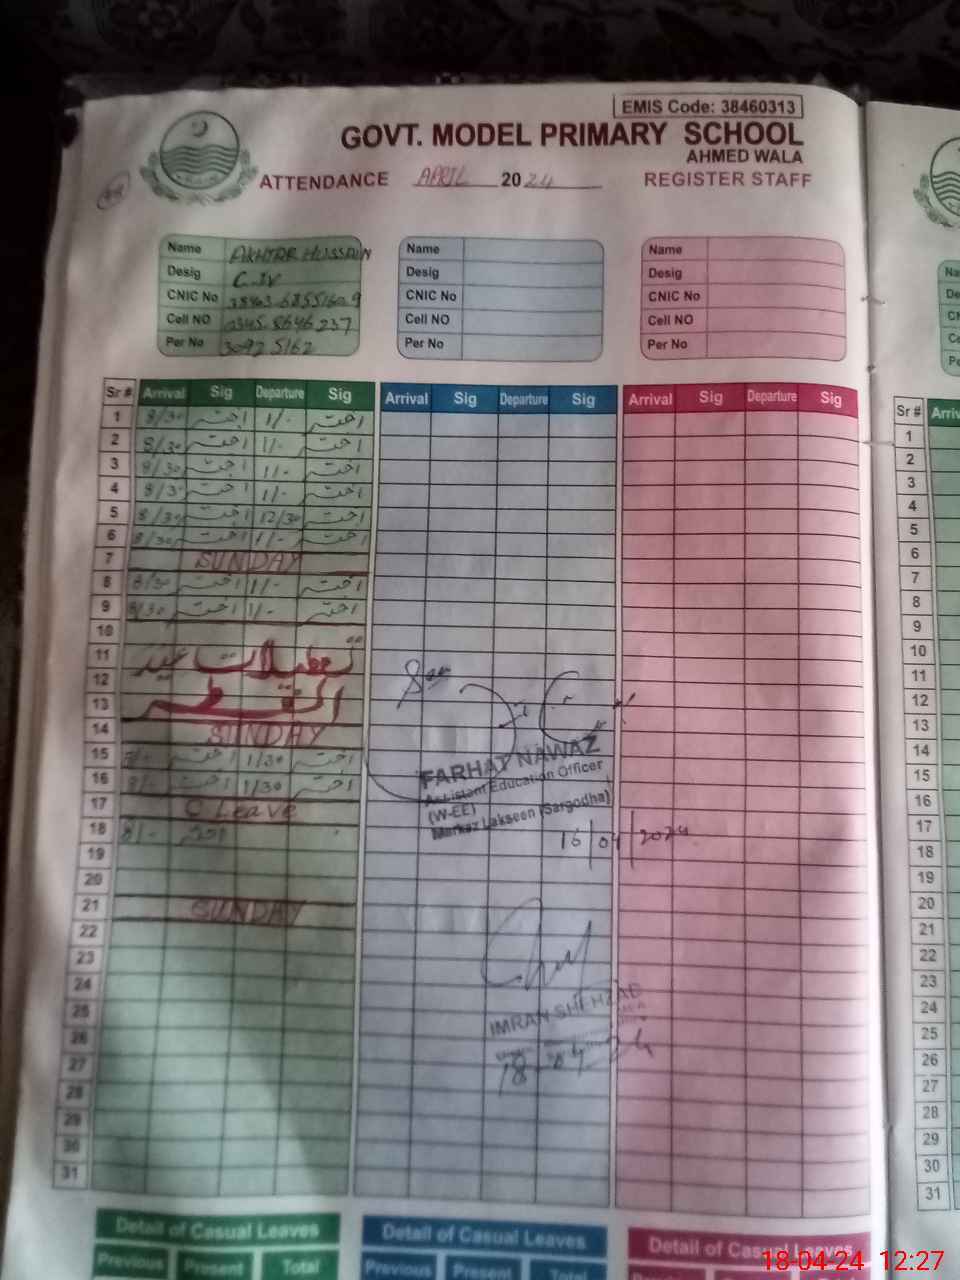 EMIS Code: 38460313
GOVT. MODEL PRIMARY SCHOOL
AHMED WALA
ATTENDANCE APRIL 2024 REGISTER STAFF
Name AKHTAR HUSSAIN Name Name
Desig C-IV Desig Desig
CNIC No CNIC No CNIC No
Cell NO 0345.8646237 Cell NO Cell NO
Per No 30925162 Per No Per No
Sr # Arrival Sig Departure Sig Arrival Sig Departure Sig Arrival Sig Departure Sig
1 8/30 اختر 1/- اختر
2 8/30 اختر 1/- اختر
3 8/30 اختر 1/- اختر
4 8/30 اختر 1/- اختر
5 8/30 اختر 12/30 اختر
6 8/30 اختر 1/- اختر
7 SUNDAY
8 8/30 اختر 1/- اختر
9 8/30 اختر 1/- اختر
10
11 تعطیلات عید
12 See
13 الفطر
14 SUNDAY
15 8/- اختر 1/30 اختر
FARHAT NAWAZ
Assistant Education Officer
16 8/- اختر 1/30 اختر
(W-EE)
17 C Leave
Markaz Lakseen (Sargodha)
18 8/- اختر
16/04/2024
19
20
21 SUNDAY
22
23
24
25
IMRAN SHEHZAD
26
18-04-24
27
28
29
30
31
Detail of Casual Leaves Detail of Casual Leaves Detail of Casual Leaves
Previous Present Total Previous Present Total
Sr # Arriv
1
2
3
4
5
6
7
8
9
10
11
12
13
14
15
16
17
18
19
20
21
22
23
24
25
26
27
28
29
30
31
18-04-24 12:27